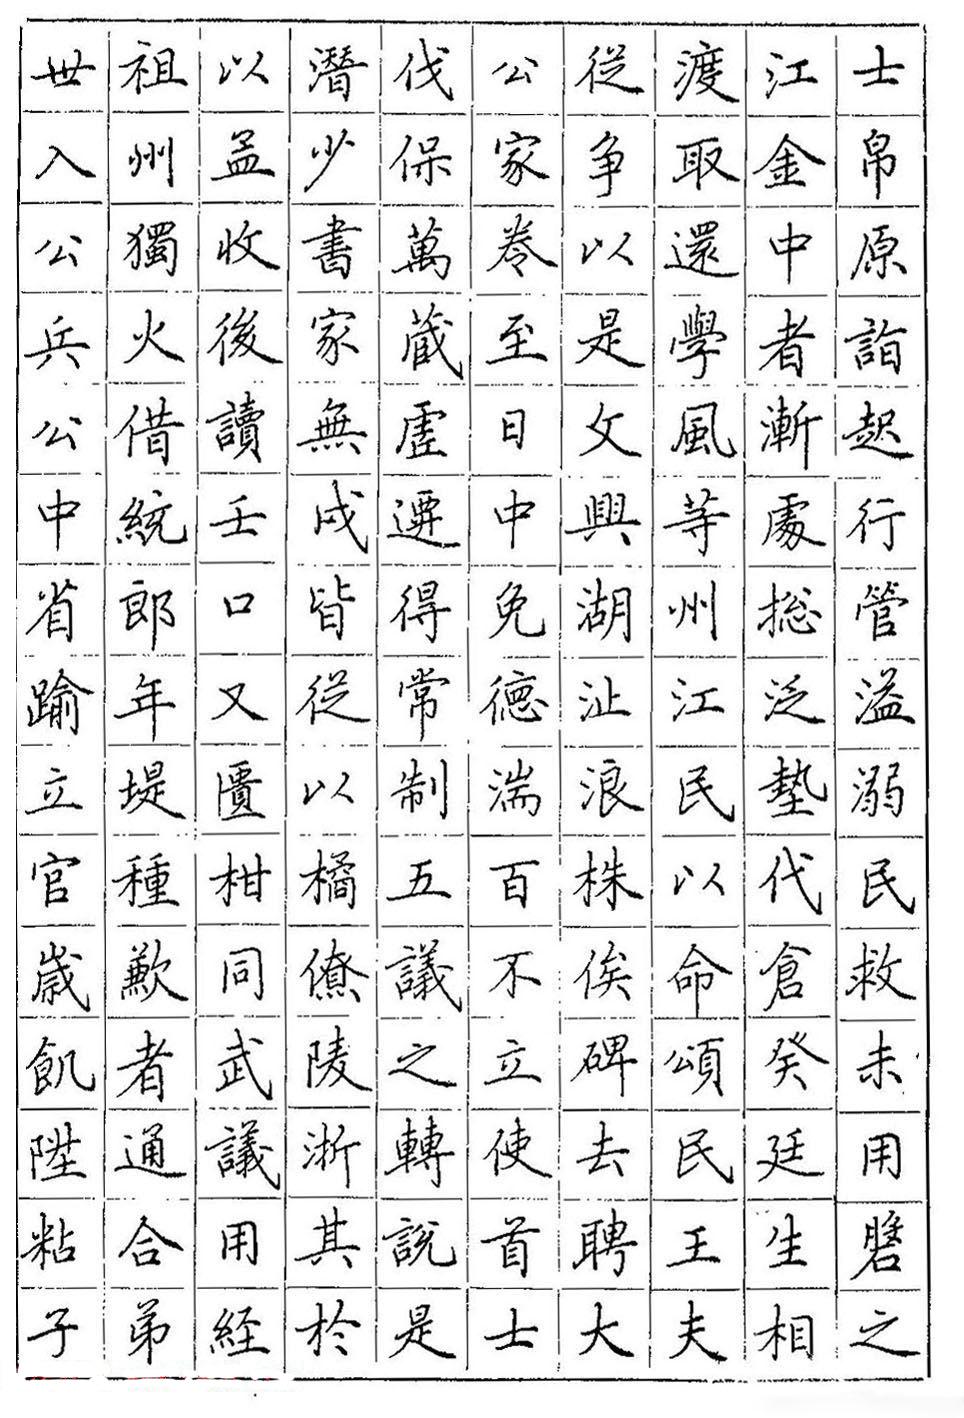 世祖以潛伐公從渡江士
入州孟少保家爭取金帛
公獨收書萬卷以還中原
兵火後家蔵至是學者詣
公借讀無虛日文風漸起
中統壬戌選中興等處行
省郎口皆得免湖州総管
踰年又從常德沚江泛溢
立堤匱以制湍浪民墊溺
官種柑橘五百株以代民
歲歉同僚議不俟命倉救
飢者武陵之立碑頌癸未
陞通議浙轉使去民廷用
粘合用其說首聘王生
子弟経於是士大夫相之